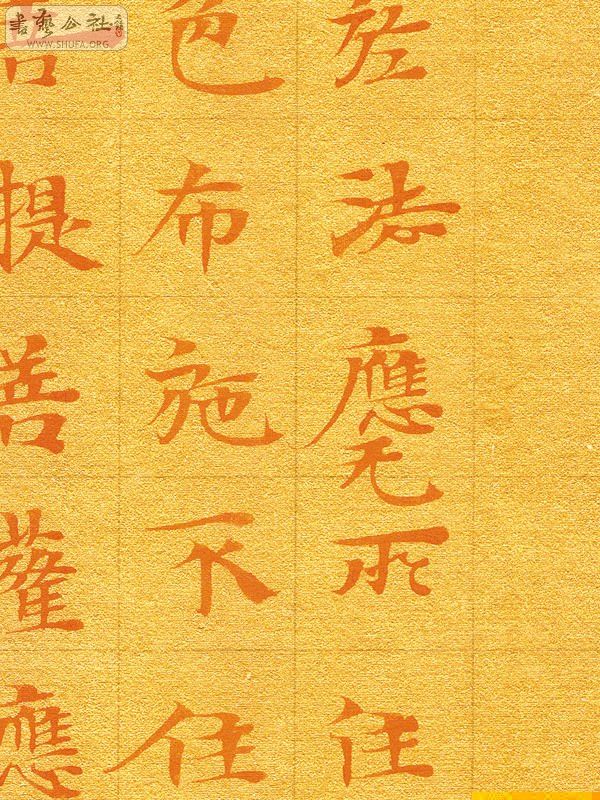 於法應无所住
色布施不住
言提菩薩應
書藝公社
WWW.SHUFA.ORG